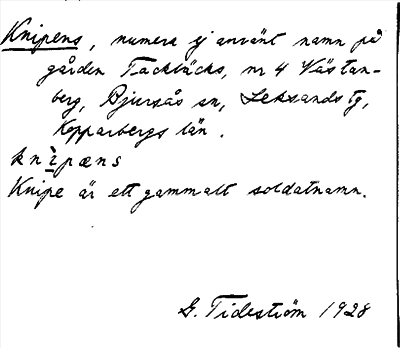 Knipens, numera ej använt namn på
gården Tackbäcks, nr 4 Västan-
berg, Bjursås sn, Leksands tg,
Kopparbergs län.
knìpæns
Knipe är ett gammalt soldatnamn.
G. Tideström 1928